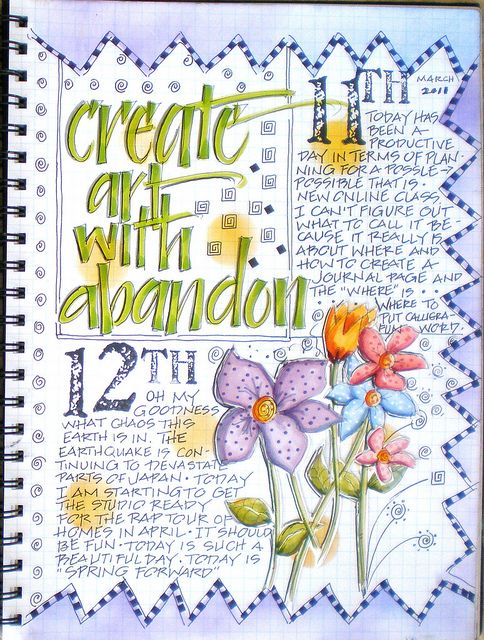 create
art
with
abandon
11TH
MARCH
2011
TODAY HAS
BEEN A
PRODUCTIVE
DAY IN TERMS OF PLAN-
NING FOR A POSSLE-
POSSIBLE THAT IS -
NEW ONLINE CLASS
I CAN'T FIGURE OUT
WHAT TO CALL IT BE-
CAUSE IT REALLY IS
ABOUT WHERE AND
HOW TO CREATE A
JOURNAL PAGE AND
THE "WHERE" IS ...
WHERE TO
PUT CALLIGRA-
WORD.
12TH
OH MY
GOODNESS
WHAT CHAOS THIS
EARTH IS IN. THE
EARTHQUAKE IS CON-
TINUING TO DEVASTATE
PARTS OF JAPAN · TODAY
I AM STARTING TO GET
THE STUDIO READY
FOR THE RAP TOUR OF
HOMES IN APRIL · IT SHOULD
BE FUN · TODAY IS SUCH A
BEAUTIFUL DAY · TODAY IS
"SPRING FORWARD"